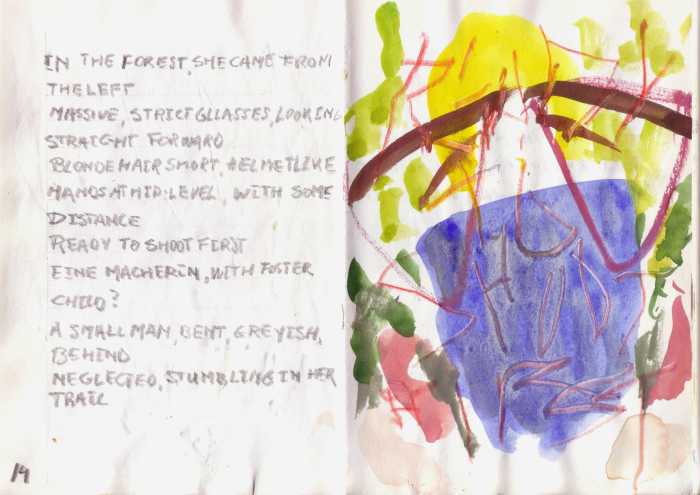 IN THE FOREST, SHE CAME FROM
THE LEFT
MASSIVE, STRICT GLLASSES, LOOKING
STRAIGHT FORWARD
BLONDE HAIR SHORT, HELMETLIKE
HANDS AT HID-LEVEL, WITH SOME
DISTANCE
READY TO SHOOT FIRST
EINE MACHERIN, WITH FOSTER
CHILD?
A SMALL MAN, BENT, GREYISH,
BEHIND
NEGLECTED, STUMBLING IN HER
TRAIL
19